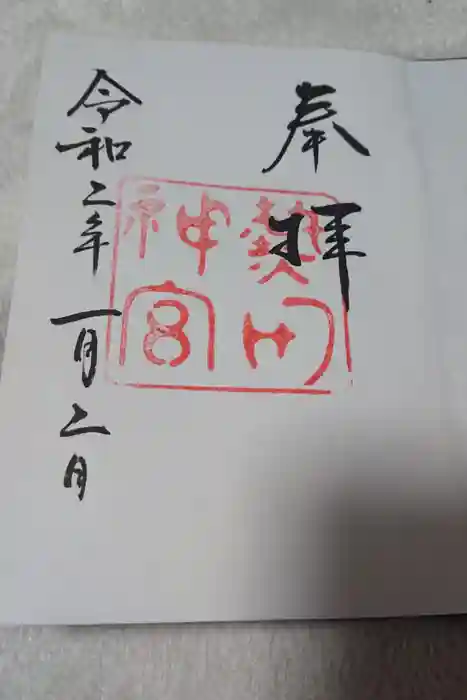 奉拝
熱田
神宮
令和二年一月二日